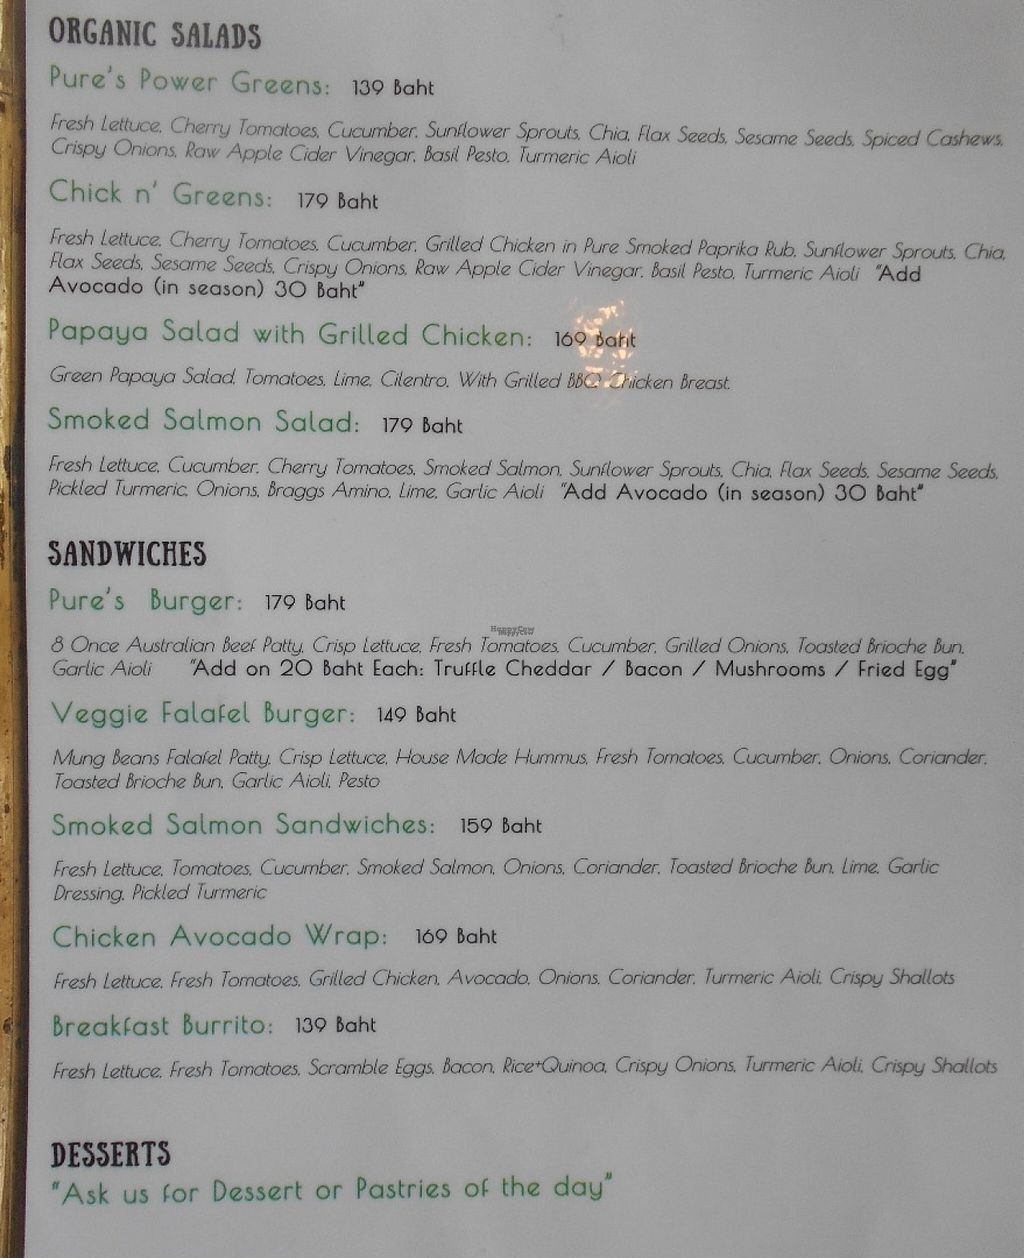 ORGANIC SALADS
Pure's Power Greens: 139 Baht
Fresh Lettuce, Cherry Tomatoes, Cucumber, Sunflower Sprouts, Chia, Flax Seeds, Sesame Seeds, Spiced Cashews,
Crispy Onions, Raw Apple Cider Vinegar, Basil Pesto, Turmeric Aioli
Chick n' Greens: 179 Baht
Fresh Lettuce, Cherry Tomatoes, Cucumber, Grilled Chicken in Pure Smoked Paprika Rub, Sunflower Sprouts, Chia,
Flax Seeds, Sesame Seeds, Crispy Onions, Raw Apple Cider Vinegar, Basil Pesto, Turmeric Aioli "Add
Avocado (in season) 30 Baht"
Papaya Salad with Grilled Chicken: 169 Baht
Green Papaya Salad, Tomatoes, Lime, Cilentro, With Grilled BBQ Chicken Breast
Smoked Salmon Salad: 179 Baht
Fresh Lettuce, Cucumber, Cherry Tomatoes, Smoked Salmon, Sunflower Sprouts, Chia, Flax Seeds, Sesame Seeds,
Pickled Turmeric, Onions, Braggs Amino, Lime, Garlic Aioli "Add Avocado (in season) 30 Baht"
SANDWICHES
Pure's Burger: 179 Baht
HappyCow
8 Once Australian Beef Patty, Crisp Lettuce, Fresh Tomatoes, Cucumber, Grilled Onions, Toasted Brioche Bun,
Garlic Aioli "Add on 20 Baht Each: Truffle Cheddar / Bacon / Mushrooms / Fried Egg"
Veggie Falafel Burger: 149 Baht
Mung Beans Falafel Patty, Crisp Lettuce, House Made Hummus, Fresh Tomatoes, Cucumber, Onions, Coriander,
Toasted Brioche Bun, Garlic Aioli, Pesto
Smoked Salmon Sandwiches: 159 Baht
Fresh Lettuce, Tomatoes, Cucumber, Smoked Salmon, Onions, Coriander, Toasted Brioche Bun, Lime, Garlic
Dressing, Pickled Turmeric
Chicken Avocado Wrap: 169 Baht
Fresh Lettuce, Fresh Tomatoes, Grilled Chicken, Avocado, Onions, Coriander, Turmeric Aioli, Crispy Shallots
Breakfast Burrito: 139 Baht
Fresh Lettuce, Fresh Tomatoes, Scramble Eggs, Bacon, Rice+Quinoa, Crispy Onions, Turmeric Aioli, Crispy Shallots
DESSERTS
"Ask us for Dessert or Pastries of the day"